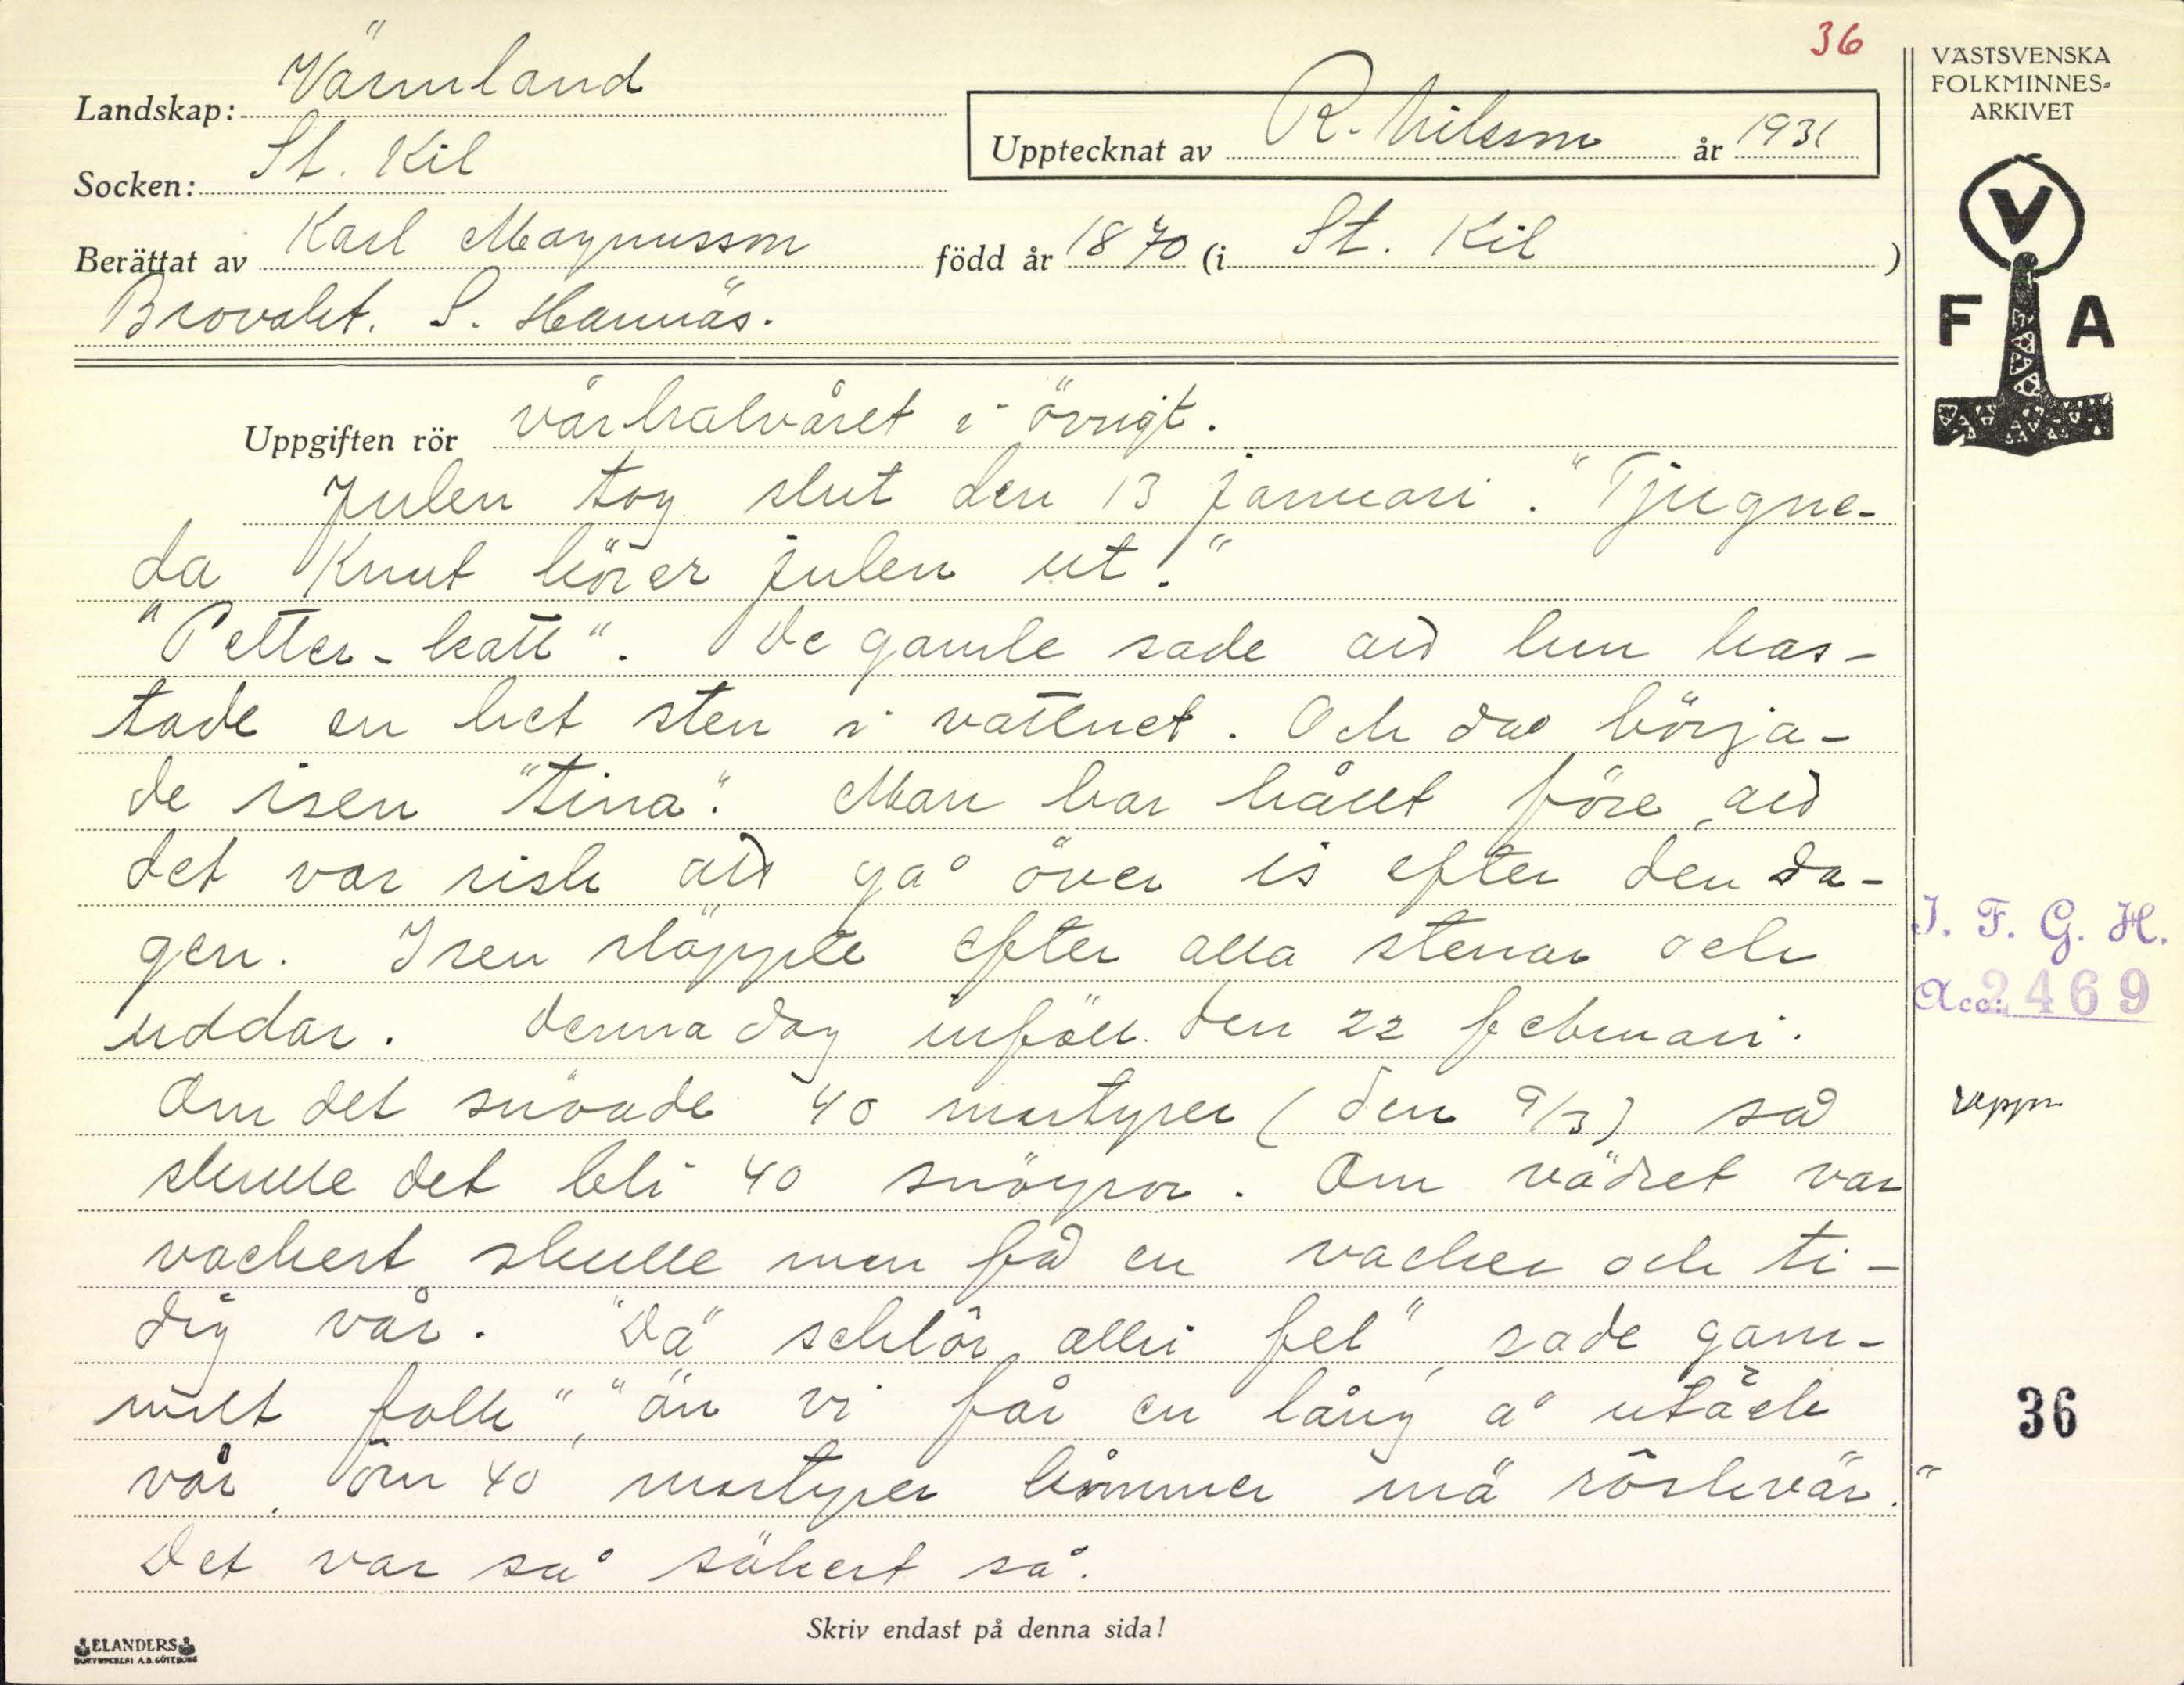 36
VÄSTSVENSKA
FOLKMINNES-
ARKIVET
Landskap: Värmland
Upptecknat av R. Nilsson år 1931
Socken: St. Kil
Berättat av Karl Magnusson född år 1870 (i St. Kil)
Brovalet. S. Hannäs.
V
F A
Uppgiften rör vårhalvåret i övrigt.
Julen tog slut den 13 januari. "Tjugne-
da Knut körer julen ut."
"Petter-katt". De gamle sade att hun kas-
tade en het sten i vattnet. Och då börja-
de isen "tina". Man har hållt före, att
det var risk att gå över is efter den da-
gen. Isen släppte efter alla stenar och
uddar. Denna dag inföll den 22 februari.
Om det snöade 40 martyrer (den 9/3) så
skulle det bli 40 snöyror. Om vädret var
vackert skulle man få en vacker och ti-
dig vår. "Dä schlôr alli fel", sade gam-
malt folk", "än vi får en lång å utäck
vår, om 40 martyrer kommer mä rôskvär."
Det var så säkert så.
I. F. G. H.
Acc: 2469
36
Skriv endast på denna sida!
ELANDERS
BOKTRYCKERI A.B. GÖTEBORG